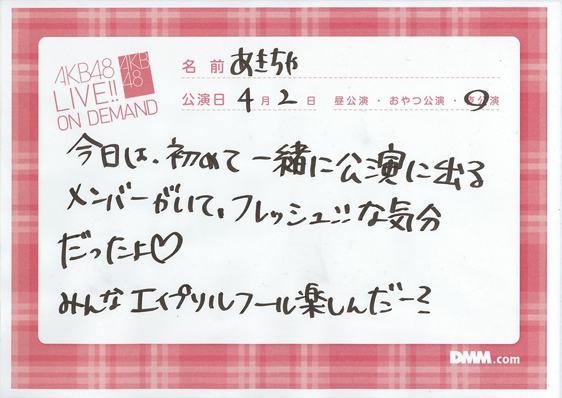 AKB48
LIVE!!
ON DEMAND
AKB
48
名 前 あきちゃ
公演日 4 月 2 日 昼公演・おやつ公演・夜公演
今日は、初めて一緒に公演に出る
メンバーがいて、フレッシュ!!な気分
だったよ♡
みんなエイプリルフール楽しんだー?
DMM.com